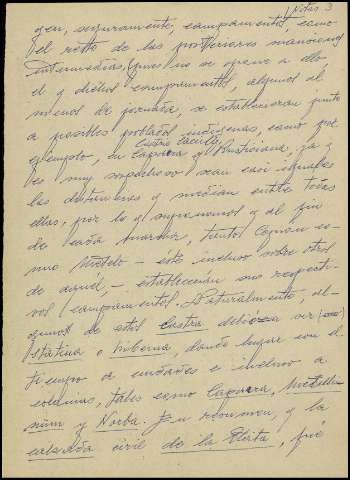 Notas 3
gen, seguramente, campamentos, como
el resto de las posteriores mansiones
intermedias, pues no se opone a ello,
el q dichos campamentos, algunos al
menos de jornada, se establecieran junto
a posibles poblados indígenas, como por
Castra Caecilia,
ejemplo, en Capara y Rusticiana, ya q
es muy sospechoso sean casi iguales
las distancias q median entre todas
ellas, por lo q suponemos q al fin
de cada marcha, tanto Cepion co-
mo Metelo - éste incluso sobre otros
de aquél, - establecerían sus respecti-
vos campamentos. Naturalmente, al-
gunos de estos Castra debieron ser
stativa o hiberna, dando lugar con el
tiempo a ciudades e incluso a
colonias, tales como Capara, Metelli-
num y Norba. En resumen, q la
calzada civil de la Plata, fué